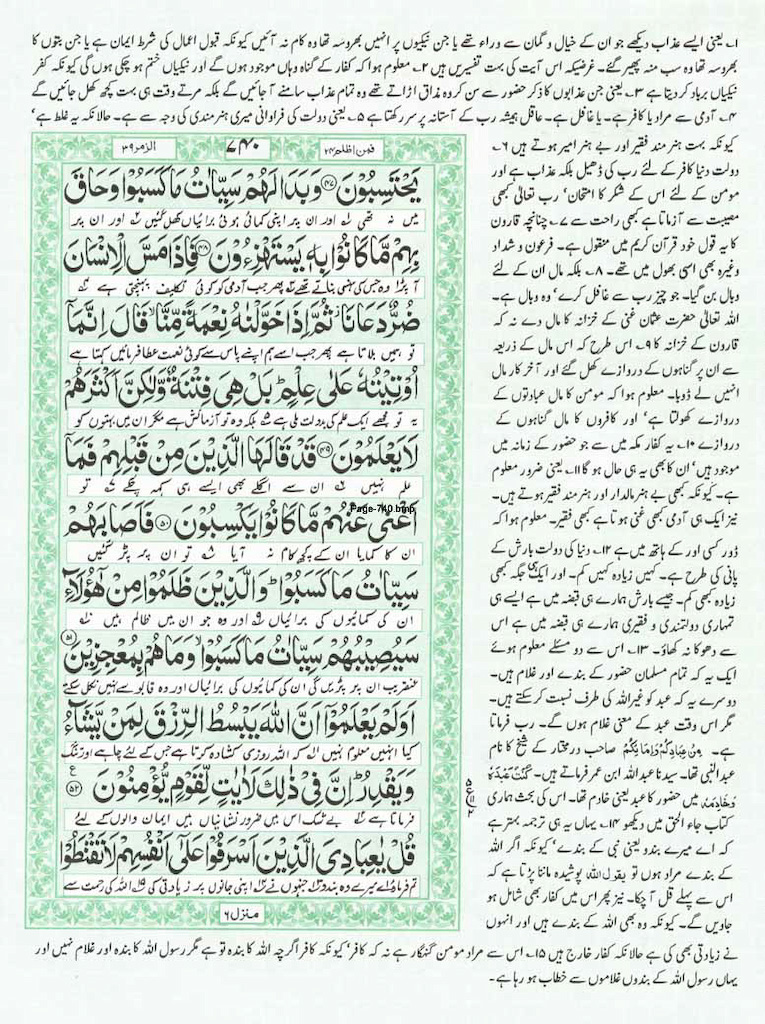 ۱۔ یعنی ایسے عذاب دیکھے جو ان کے خیال و گمان سے وراء تھے یا جن نیکیوں پر انہیں بھروسہ تھا وہ کام نہ آئیں کیونکہ قبول اعمال کی شرط ایمان ہے یا جن بتوں کا
بھروسہ تھا وہ سب منہ پھیر گئے۔ غرضیکہ اس آیت کی بہت تفسیریں ہیں ۲۔ معلوم ہوا کہ کفار کے گناہ وہاں موجود ہوں گے اور نیکیاں ختم ہو چکی ہوں گی کیونکہ کفر
نیکیاں برباد کر دیتا ہے ۳۔ یعنی جن عذابوں کا ذکر حضور سے سن کر وہ مذاق اڑاتے تھے وہ تمام عذاب سامنے آ جائیں گے بلکہ مرتے وقت ہی بہت کچھ کھل جائیں گے
۴۔ آدمی سے مراد یا کافر ہے۔ یا غافل ہے۔ عاقل ہمیشہ رب کے آستانہ پر سر رکھتا ہے ۵۔ یعنی دولت کی فراوانی میری ہنر مندی کی وجہ سے ہے۔ حالانکہ یہ غلط ہے'
کیونکہ بہت ہنر مند فقیر اور بے ہنر امیر ہوتے ہیں ۶۔
دولت دنیا کافر کے لئے رب کی ڈھیل بلکہ عذاب ہے اور
مومن کے لئے اس کے شکر کا امتحان' رب تعالیٰ کبھی
مصیبت سے آزماتا ہے کبھی راحت سے ۷۔ چنانچہ قارون
کا یہ قول خود قرآن کریم میں منقول ہے۔ فرعون و شداد
وغیرہ بھی اسی بھول میں تھے۔ ۸۔ بلکہ مال ان کے لئے
وبال بن گیا۔ جو چیز رب سے غافل کرے' وہ وبال ہے۔
اللہ تعالیٰ حضرت عثمان غنی کے خزانہ کا مال دے نہ کہ
قارون کے خزانہ کا ۹۔ اس طرح کہ اس مال کے ذریعہ
سے ان پر گناہوں کے دروازے کھل گئے اور آخر کار مال
انہیں لے ڈوبا۔ معلوم ہوا کہ مومن کا مال عبادتوں کے
دروازے کھولتا ہے' اور کافروں کا مال گناہوں کے
دروازے ۱۰۔ یہ کفار مکہ میں سے جو حضور کے زمانہ میں
موجود ہیں' ان کا بھی یہ ہی حال ہو گا ۱۱۔ یعنی ضرور معلوم
ہے۔ کیونکہ کبھی بے ہنر مالدار اور ہنر مند فقیر ہوتے ہیں۔
نیز ایک ہی آدمی کبھی غنی ہوتا ہے کبھی فقیر۔ معلوم ہوا کہ
ڈور کسی اور کے ہاتھ میں ہے ۱۲۔ دنیا کی دولت بارش کے
پانی کی طرح ہے۔ کہیں زیادہ کہیں کم۔ اور ایک ہی جگہ کبھی
زیادہ کبھی کم۔ جیسے بارش ہمارے ہی قبضہ میں ہے ایسے ہی
تمہاری دولتمندی و فقیری ہمارے ہی قبضہ میں ہے اس
سے دھوکا نہ کھاؤ۔ ۱۳۔ اس سے دو مسئلے معلوم ہوئے
ایک یہ کہ تمام مسلمان حضور کے بندے اور غلام ہیں۔
دوسرے یہ کہ عبد کو غیر اللہ کی طرف نسبت کر سکتے ہیں۔
مگر اس وقت عبد کے معنی غلام ہوں گے۔ رب فرماتا
ہے۔ مِنْ عِبَادِكُمْ وَاِمَآئِكُمْ صاحب درمختار کے شیخ کا نام
عبد النبی تھا۔ سیدنا عبد اللہ ابن عمر فرماتے ہیں۔ كُنْتُ عَبْدَهٗ
وَخَادِمَهٗ میں حضور کا عبد یعنی خادم تھا۔ اس کی بحث ہماری
کتاب جاء الحق میں دیکھو ۱۴۔ یہاں یہ ہی ترجمہ بہتر ہے
کہ اے میرے بندو یعنی نبی کے بندے' کیونکہ اگر اللہ
کے بندے مراد ہوں تو یقول اللہ پوشیدہ ماننا پڑتا ہے کہ
اس سے پہلے قل آ چکا۔ نیز پھر اس میں کفار بھی شامل ہو
جاویں گے۔ کیونکہ وہ بھی اللہ کے بندے ہیں اور انہوں
فمن اظلم ۲۴
۷۴۰
الزمر ۳۹
يَحْتَسِبُوْنَ ﴿۴۷﴾ وَبَدَا لَهُمْ سَيِّاٰتُ مَا كَسَبُوْا وَحَاقَ
میں نہ تھی لے اور ان پر اپنی کمائی ہوئی برائیاں کھل گئیں لے اور ان پر
بِهِمْ مَّا كَانُوْا بِهٖ يَسْتَهْزِءُوْنَ ﴿۴۸﴾ فَاِذَا مَسَّ الْاِنْسَانَ
آ پڑا وہ جس کی ہنسی بناتے تھے پھر جب آدمی کو کوئی تکلیف پہنچتی ہے
ضُرٌّ دَعَانَا ثُمَّ اِذَا خَوَّلْنٰهُ نِعْمَةً مِّنَّا قَالَ اِنَّمَاۤ
تو ہمیں بلاتا ہے پھر جب اسے ہم اپنے پاس سے کوئی نعمت عطا فرمائیں کہتا ہے
اُوْتِيْتُهٗ عَلٰى عِلْمٍ ؕ بَلْ هِيَ فِتْنَةٌ وَّلٰكِنَّ اَكْثَرَهُمْ
یہ تو مجھے ایک علم کی بدولت ملی ہے بلکہ وہ تو آزمائش ہے مگر ان میں بہتوں کو
لَا يَعْلَمُوْنَ ﴿۴۹﴾ قَدْ قَالَهَا الَّذِيْنَ مِنْ قَبْلِهِمْ فَمَاۤ
علم نہیں ان سے اگلے بھی ایسے ہی کہہ چکے تو
اَغْنٰى عَنْهُمْ مَّا كَانُوْا يَكْسِبُوْنَ ﴿۵۰﴾ فَاَصَابَهُمْ
Page-740.bmp
ان کا کمایا ان کے کچھ کام نہ آیا تو ان پر پڑ گئیں
سَيِّاٰتُ مَا كَسَبُوْا ؕ وَالَّذِيْنَ ظَلَمُوْا مِنْ هٰۤؤُلَآءِ
ان کی کمائیوں کی برائیاں اور وہ جو ان میں ظالم ہیں
سَيُصِيْبُهُمْ سَيِّاٰتُ مَا كَسَبُوْا ۙ وَمَا هُمْ بِمُعْجِزِيْنَ ﴿۵۱﴾
عنقریب ان پر پڑیں گی ان کی کمائیوں کی برائیاں اور وہ قابو سے نہیں نکل سکتے
اَوَلَمْ يَعْلَمُوْۤا اَنَّ اللّٰهَ يَبْسُطُ الرِّزْقَ لِمَنْ يَّشَآءُ
کیا انہیں معلوم نہیں کہ اللہ روزی کشادہ کرتا ہے جس کے لئے چاہے اور تنگ
وَيَقْدِرُ ؕ اِنَّ فِيْ ذٰلِكَ لَاٰيٰتٍ لِّقَوْمٍ يُّؤْمِنُوْنَ ﴿۵۲﴾
فرماتا ہے بے شک اس میں ضرور نشانیاں ہیں ایمان والوں کے لئے
قُلْ يٰعِبَادِيَ الَّذِيْنَ اَسْرَفُوْا عَلٰۤى اَنْفُسِهِمْ لَا تَقْنَطُوْا
تم فرماؤ اے میرے وہ بندو جنہوں نے اپنی جانوں پر زیادتی کی اللہ کی رحمت سے
منزل ۶
نے زیادتی بھی کی ہے حالانکہ کفار خارج ہیں ۱۵۔ اس سے مراد مومن گنہگار ہے نہ کہ کافر' کیونکہ کافر اگرچہ اللہ کا بندہ تو ہے مگر رسول اللہ کا بندہ اور غلام نہیں اور
یہاں رسول اللہ کے بندوں غلاموں سے خطاب ہو رہا ہے۔